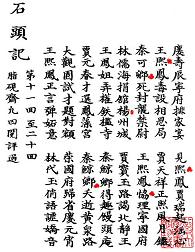 慶壽辰寧府排家宴 見熙鳳賈瑞起淫心
王熙鳳毒設相思局 賈天祥正照風月鑑
秦可卿死封龍禁尉 王熙鳳協理寧國府
林儒海捐館揚州城 賈寶玉路謁北靜王
王鳳姐弄權鐵檻寺 秦鯨卿得趣饅頭庵
賈元春才選鳳藻宮 秦鯨卿夭逝黃泉路
大觀園試才題對額 榮國府歸省慶元宵
王熙鳳正言彈妒意 林代玉俏語謔嬌音
第十一回至二十回
脂硯齋凡四閱評過
石頭記